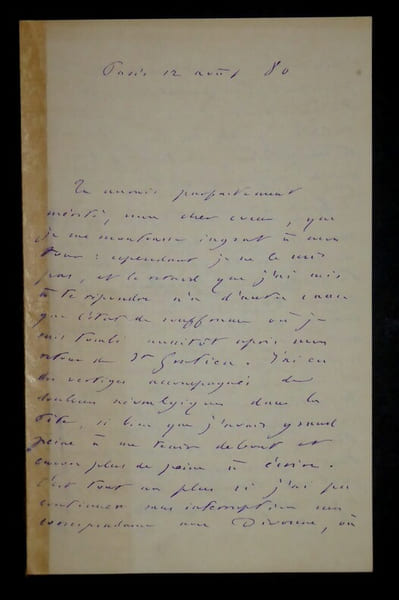 Paris 12 août 80
Tu aurais parfaitement
mérité, mon cher cœur, que
je me montrasse ingrat à mon
tour : cependant je ne le suis
pas, et le retard que j'ai mis
à te répondre n'a d'autre cause
que l'état de souffrance où je
suis tombé aussitôt après mon
retour de St Gratien. J'ai eu
des vertiges accompagnés de
douleurs névralgiques dans la
tête, si bien que j'avais grand
peine à me tenir debout et
encor plus de peine à écrire.
C'est tout au plus si j'ai pu
continuer sans interruption ma
correspondance avec Divonne, où